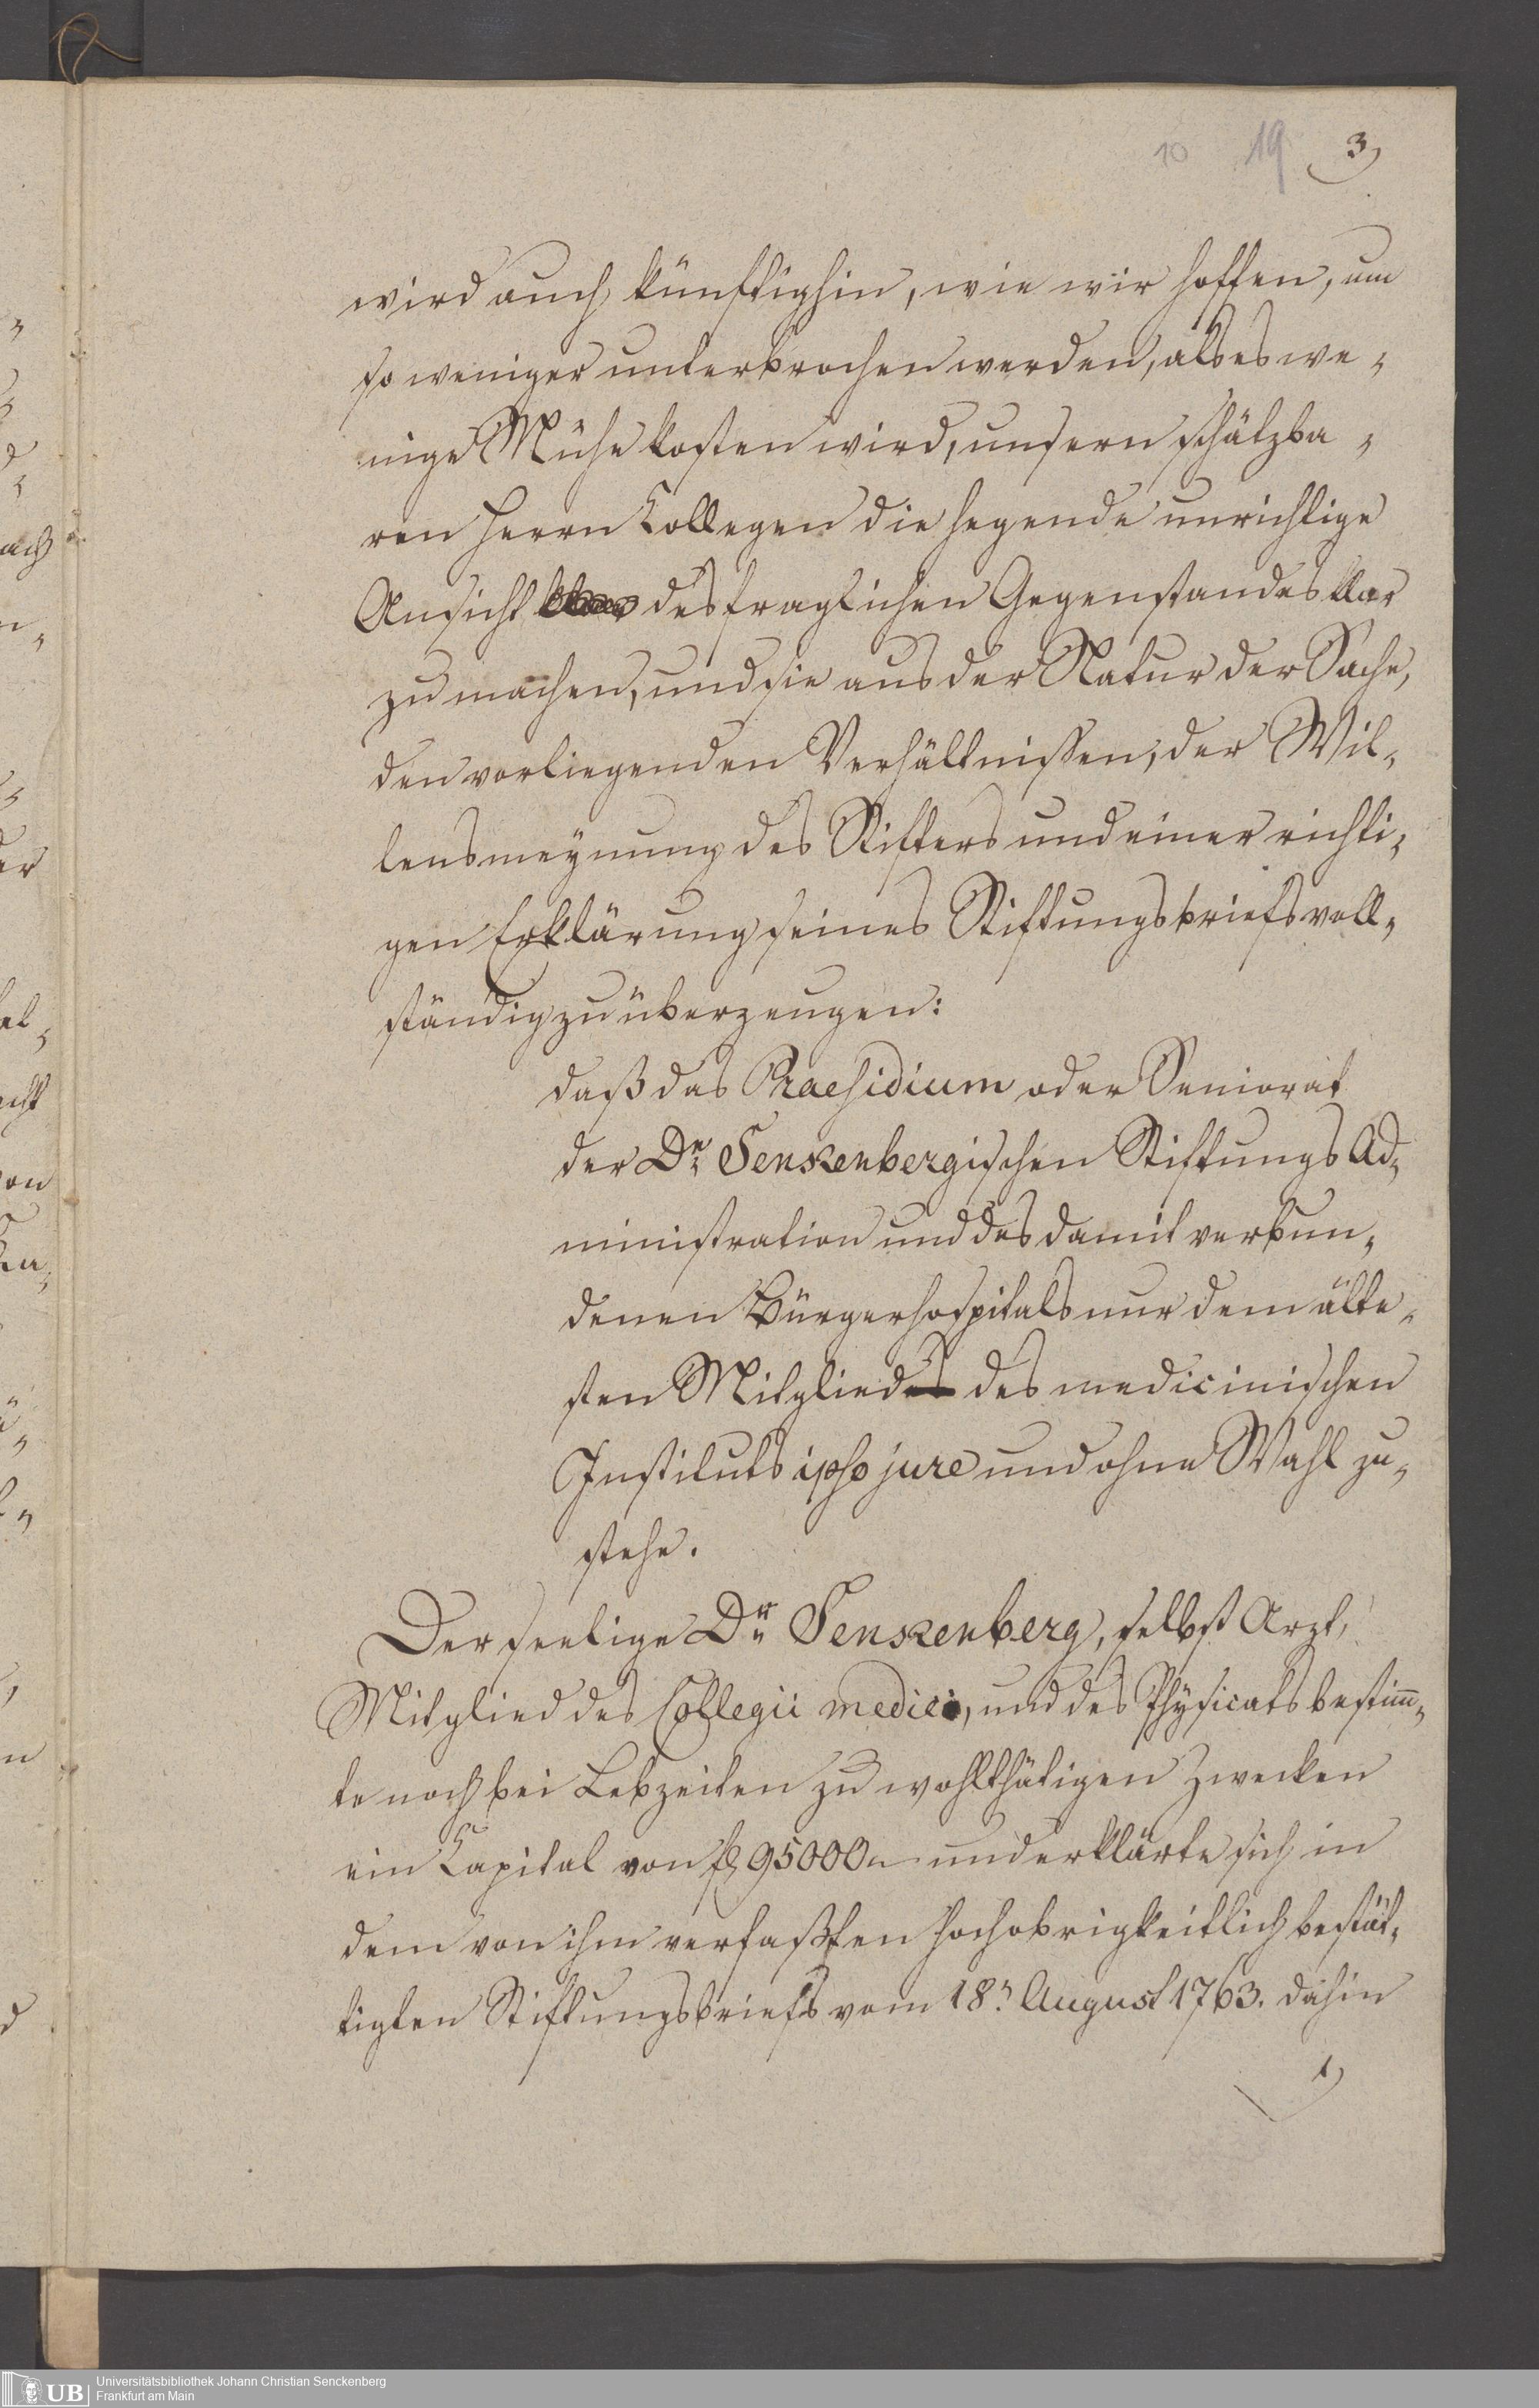 10 19 3)
wird auch künftighin, wie wir hoffen, um
so weniger unterbrochen werden, als es we-
nige Mühe kosten wird, unsern schätzba-
ren Herrn Collegen die hegende unrichtige
Ansicht des fraglichen Gegenstandes klar
zu machen, und sie aus der Natur der Sache,
den vorliegenden Verhältnissen, der Wil-
lensmeynung des Stifters und einer richti-
gen Erklärung seines Stiftungsbriefs voll-
ständig zu überzeugen:
daß das Praesidium oder Seniorat
der Dr. Senkenbergischen Stiftungs Ad-
ministration und des damit verbun-
denen Bürgerhospitals nur dem älte-
sten Mitglied des medicinischen
Instituts ipso jure und ohne Wahl zu-
stehe.
Der seelige Dr. Senkenberg, selbst Arzt,
Mitglied des Collegii medici, und des Physicats bestim̅-
te noch bei Lebzeiten zu wohlthätigen Zwecken
ein Capital von fl 95000 und erklärte sich in
dem von ihm verfaßten hochobrigkeitlich bestät-
tigten Stiftungsbriefs vom 18n August 1763. dahin
1)
Universitätsbibliothek Johann Christian Senckenberg
Frankfurt am Main
UB